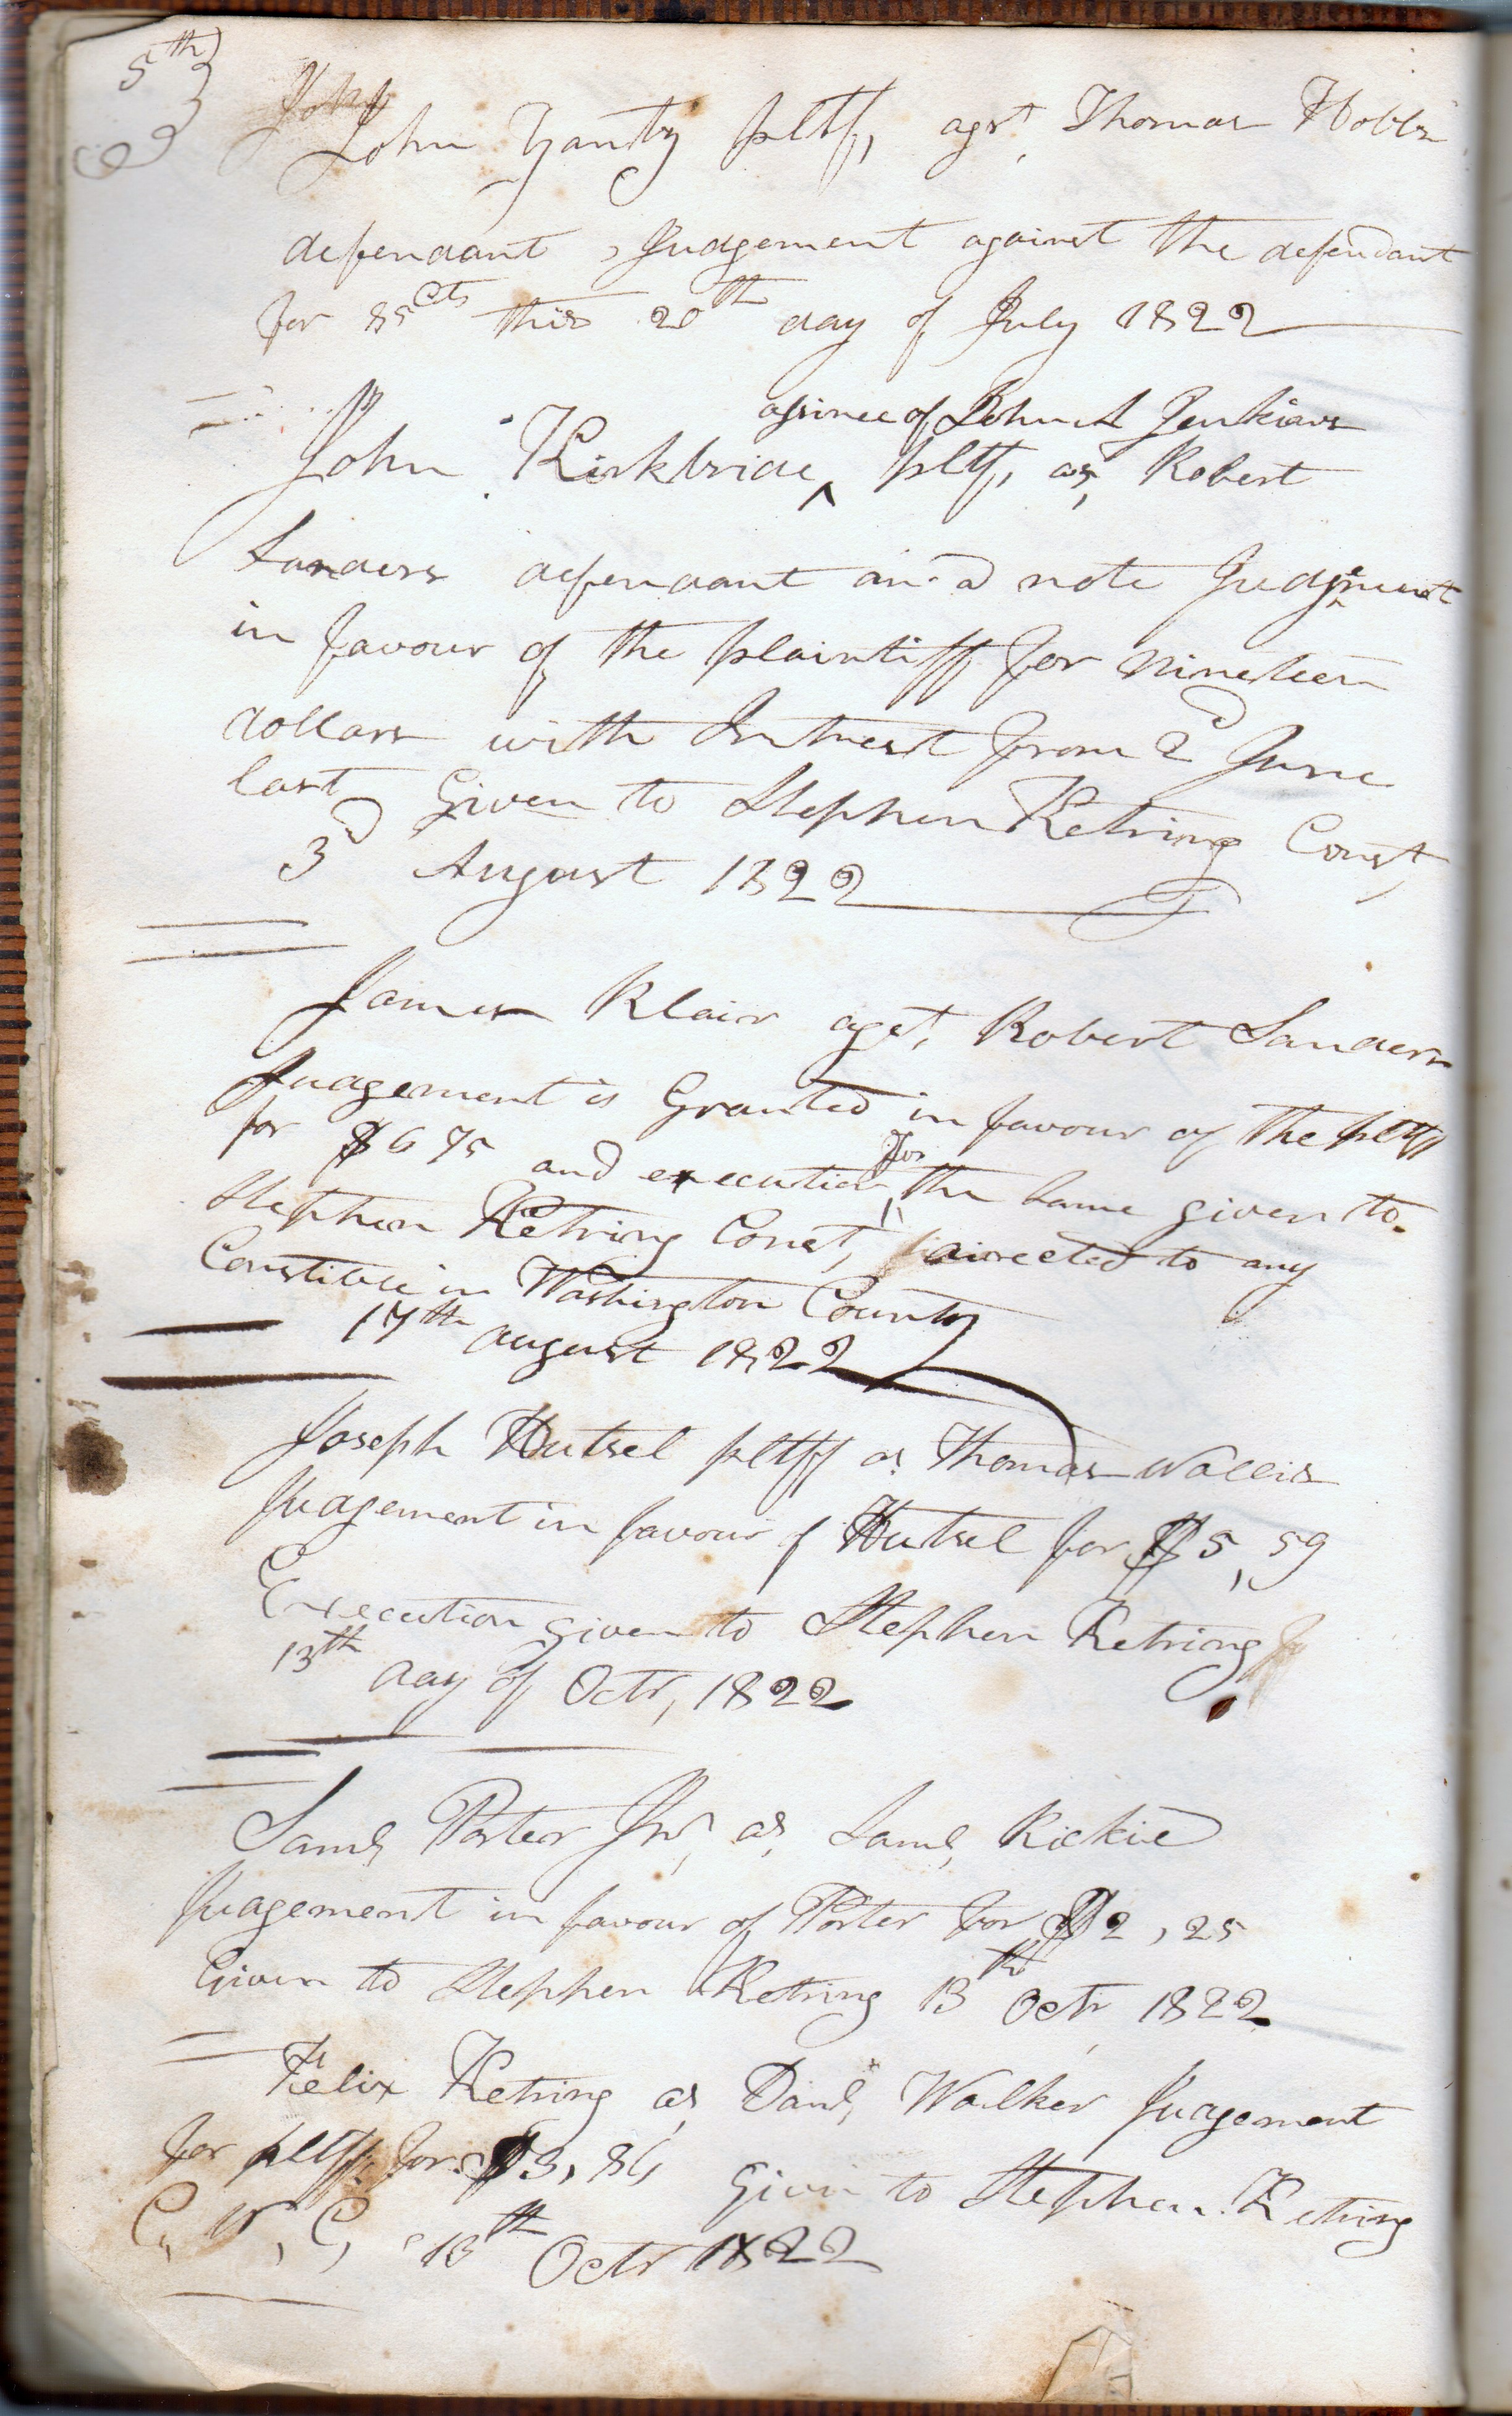 5th
John
John Yantz pltf, agst Thomas Hobbs
defendant, Judgement against the defendant
for 85 Cts this 20th day of July 1822
assinee of John A Jenkins
John Kirkbride ^ pltf, as, Robert
Sanders defendant on a note Judgement
in favour of the plaintiff for nineteen
dollars with Intrest from 2d June
last Given to Stephen Ketring Const,
3d August 1822
James Klair agst, Robert Sanders
Judgement is Granted in favour of the pltff
for $6 75 and execution for the same given to
Stephen Ketring Const, directed to any
Constible in Washington County
17th august 1822
Joseph Hutsel pltff as Thomas Wallis
Judgement in favour of Hutsel for $5,59
Execution given to Stephen Ketring
13th day of Octr, 1822
Saml, Porter Jnr, as, Saml, Rickie
Judgement in favour of Porter for $2,25
Given to Stephen Ketring 13th Octr 1822
Felix Ketring as, Danl, Walker Judgement
for pltff for $3,86 Given to Stephen Ketring
C, W, C, 13th Octr 1822